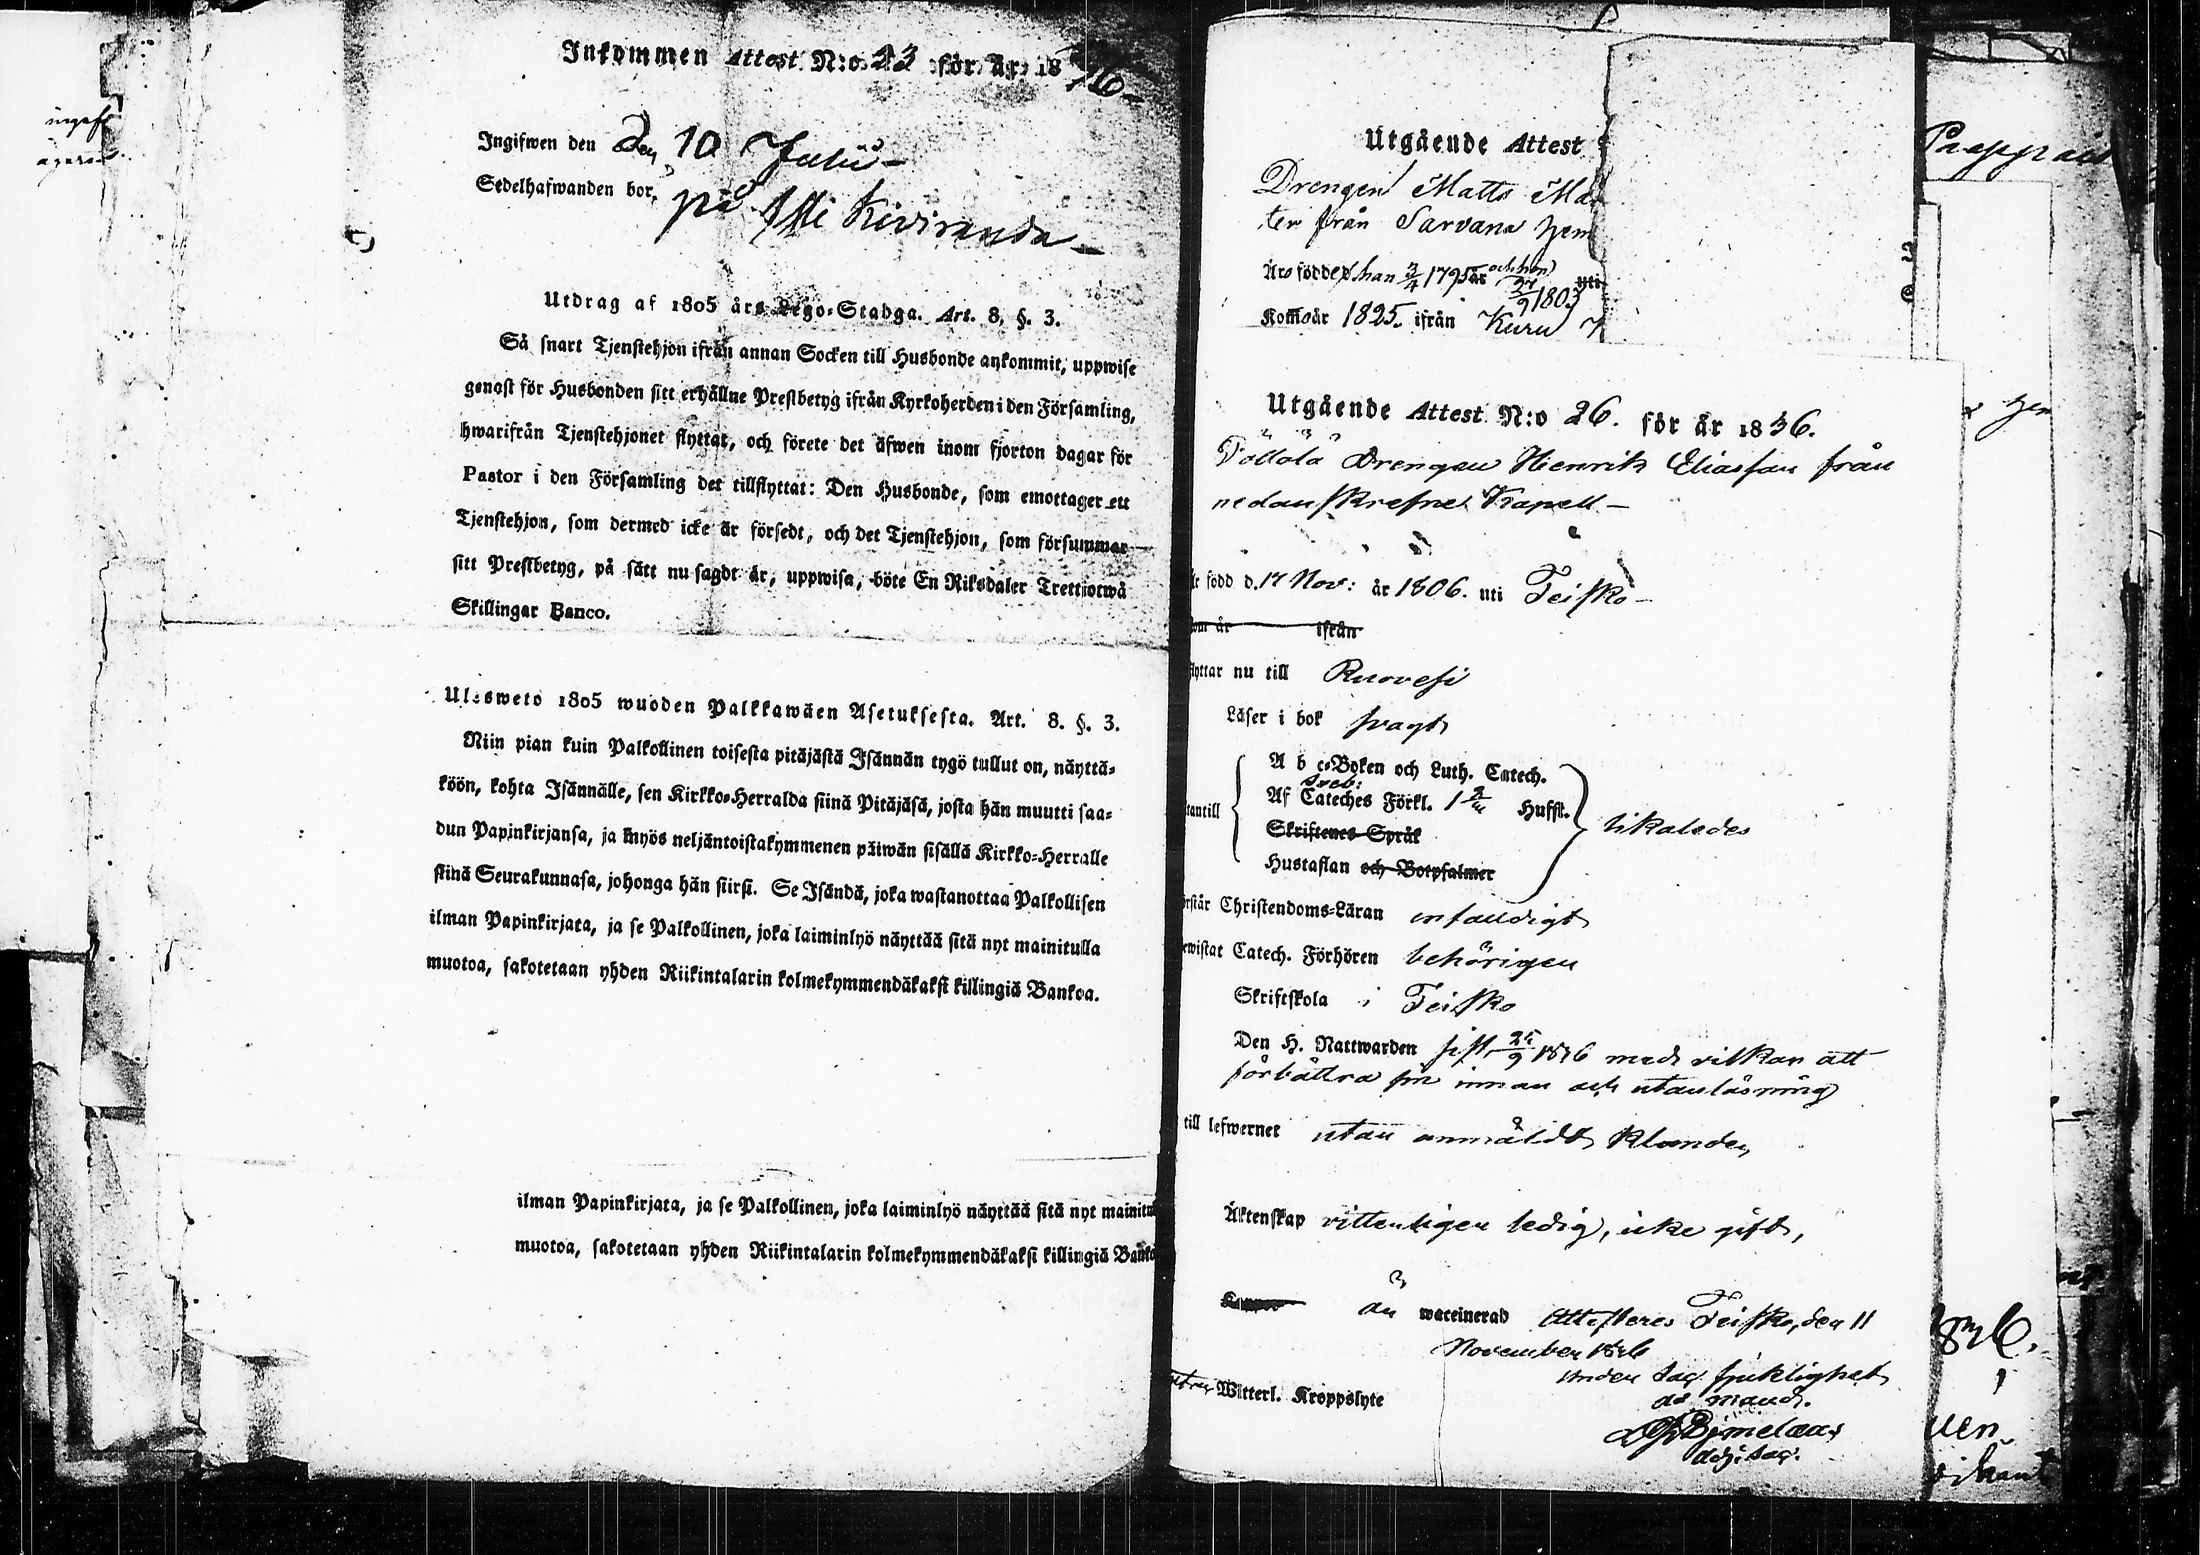 Inkommen Attest N:o 23 för år 1836
Ingifwen den 10 Julii
Sedelhafwanden bor, på Kiviranda
Utdrag af 1805 års Lego-Stadga. Art. 8. §. 3.
Så snart Tjenstehjon ifrån annan Socken till Husbonde ankommit, uppwise
genast för Husbonden sitt erhållne Prestbetyg ifrån Kyrkoherden i den Församling,
hwarifrån Tjenstehjonet flyttat, och förete det äfwen inom fjorton dagar för
Pastor i den Församling det tillflyttat: Den Husbonde, som emottager ett
Tjenstehjon, som dermed icke är försedt, och det Tjenstehjon, som försummar
sitt Prestbetyg, på sätt nu sagdt är, uppwisa, böte En Riksdaler Trettiotwå
Skillingar Banco.
Ulosweto 1805 wuoden Palkkawäen Asetuksesta. Art. 8. §. 3.
Niin pian kuin Palkollinen toisesta pitäjästä Isännän tygö tullut on, näyttä-
köön, kohta Isännälle, sen Kirkko-Herralda siinä Pitäjäsä, josta hän muutti saa-
dun Papinkirjansa, ja myös neljäntoistakymmenen päiwän sisällä Kirkko-Herralle
siinä Seurakunnasa, johonga hän siirsi. Se Isändä, joka wastanottaa Palkollisen
ilman Papinkirjata, ja se Palkollinen, joka laiminlyö näyttää sitä nyt mainitulla
muotoa, sakotetaan yhden Riikintalarin kolmekymmendäkaksi killingiä Bankoa.
ilman Papinkirjata, ja se Palkollinen, joka laiminlyö näyttää sitä nyt mainitul
muotoa, sakotetaan yhden Riikintalarin kolmekymmendäkaksi killingiä Banko
Utgående Attest
Drengen Matts Mat
ter från Sarvana hem
Äro födde, han 3/4 1795 och hon 24/9 1803 uti
Kom år 1825. ifrån Kuru
Utgående Attest N:o 26. för år 1836.
Drengen Henrik Eliasson från
nedanskrefne Kapell
född d. 17 Nov: år 1806. uti Teisko
om år ifrån
flyttar nu till Ruovesi
Läser i bok svagt
A b c-Boken och Luth. Catech.
Af Sveb: Cateches Förkl. 1 Hufst.
tantill
Skriftenes Språk
Hustaflan och Botpsalmer
likaledes
rstår Christendoms-Läran enfaldigt
ewistat Catech. Förhören behörigen
Skriftskola i Teisko
Den H. Nattwarden sist 25/9 1836 med vilkor att
förbättra sin innan och utanläsning
till lefwernet utan anmäldt klander,
Äktenskap vitterligen ledig, icke gift,
är waccinerad Attesteras Teisko, den 11
November 1836
utan Witterl. Kroppslyte
under Sac. sjuklighet
ad mand.
Adj. Sac.